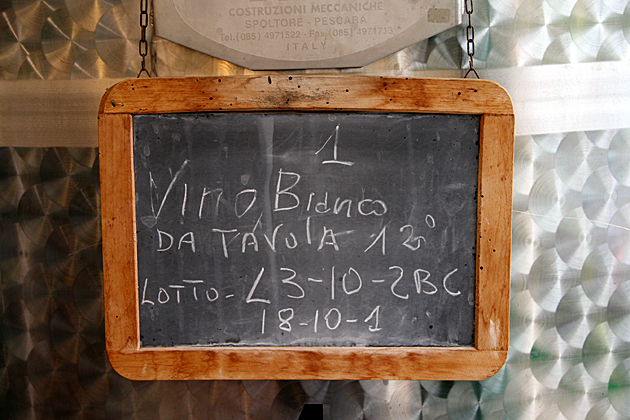 COSTRUZIONI MECCANICHE
SPOLTORE - PESCARA
Tel.(085) 4971522 - Fax (085) 4971713
ITALY
1
Vino Bianco
DA TAVOLA 12°
LOTTO - L3-10-2BC
18-10-1